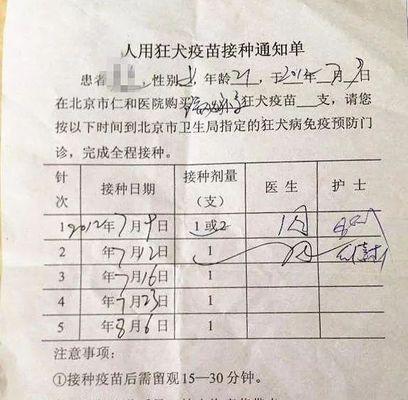 人用狂犬疫苗接种通知单
患者，性别 年龄21，于2012年7月9日
在北京市仁和医院购买 狂犬疫苗__支，请您
按以下时间到北京市卫生局指定的狂犬病免疫预防门
诊，完成全程接种。
针次 接种日期 接种剂量（支） 医生 护士
1 2012年7月9日 1或2
2 年7月12日 1
3 年7月16日 1
4 年7月23日 1
5 年8月6日 1
注意事项：
①接种疫苗后需留观15—30分钟。